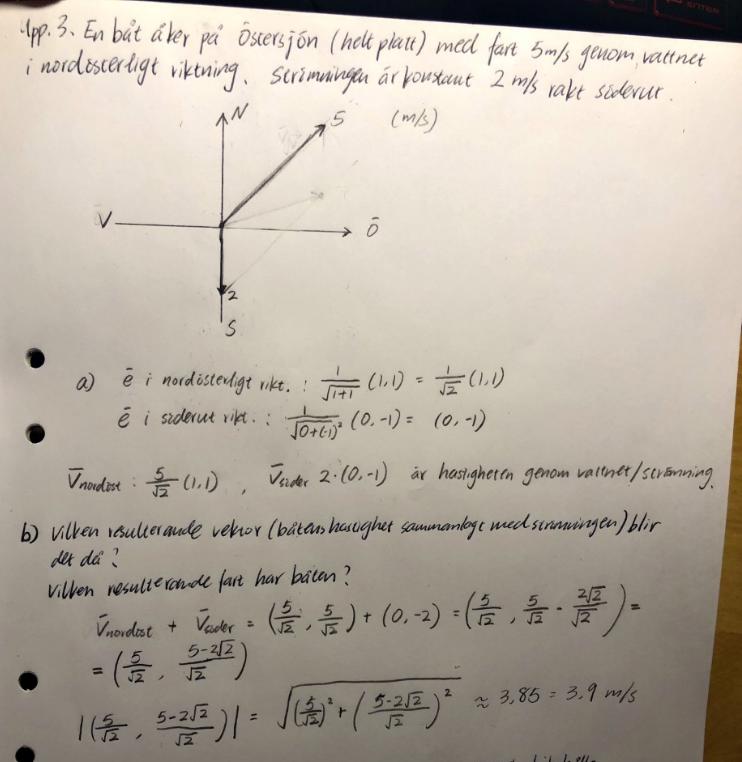 Upp. 3. En båt åker på Östersjön (helt platt) med fart 5 m/s genom vattnet
i nordösterligt riktning. Strömningen är konstant 2 m/s rakt söderut.
N
5 (m/s)
V
Ö
2
S
a) ē i nordösterligt rikt. : 1/√(1+1) (1,1) = 1/√2 (1,1)
ē i söderut rikt. : 1/√(0+(-1)²) (0,-1) = (0,-1)
V̄nordost : 5/√2 (1,1) , V̄söder 2·(0,-1) är hastigheten genom vattnet/strömning.
b) Vilken resulterande vektor (båtens hastighet sammanlagt med strömningen) blir
det då?
Vilken resulterande fart har båten?
V̄nordost + V̄söder = (5/√2 , 5/√2) + (0,-2) = (5/√2 , 5/√2 - 2√2/√2) =
= (5/√2 , (5-2√2)/√2)
|(5/√2 , (5-2√2)/√2)| = √((5/√2)² + ((5-2√2)/√2)²) ≈ 3,85 = 3,9 m/s